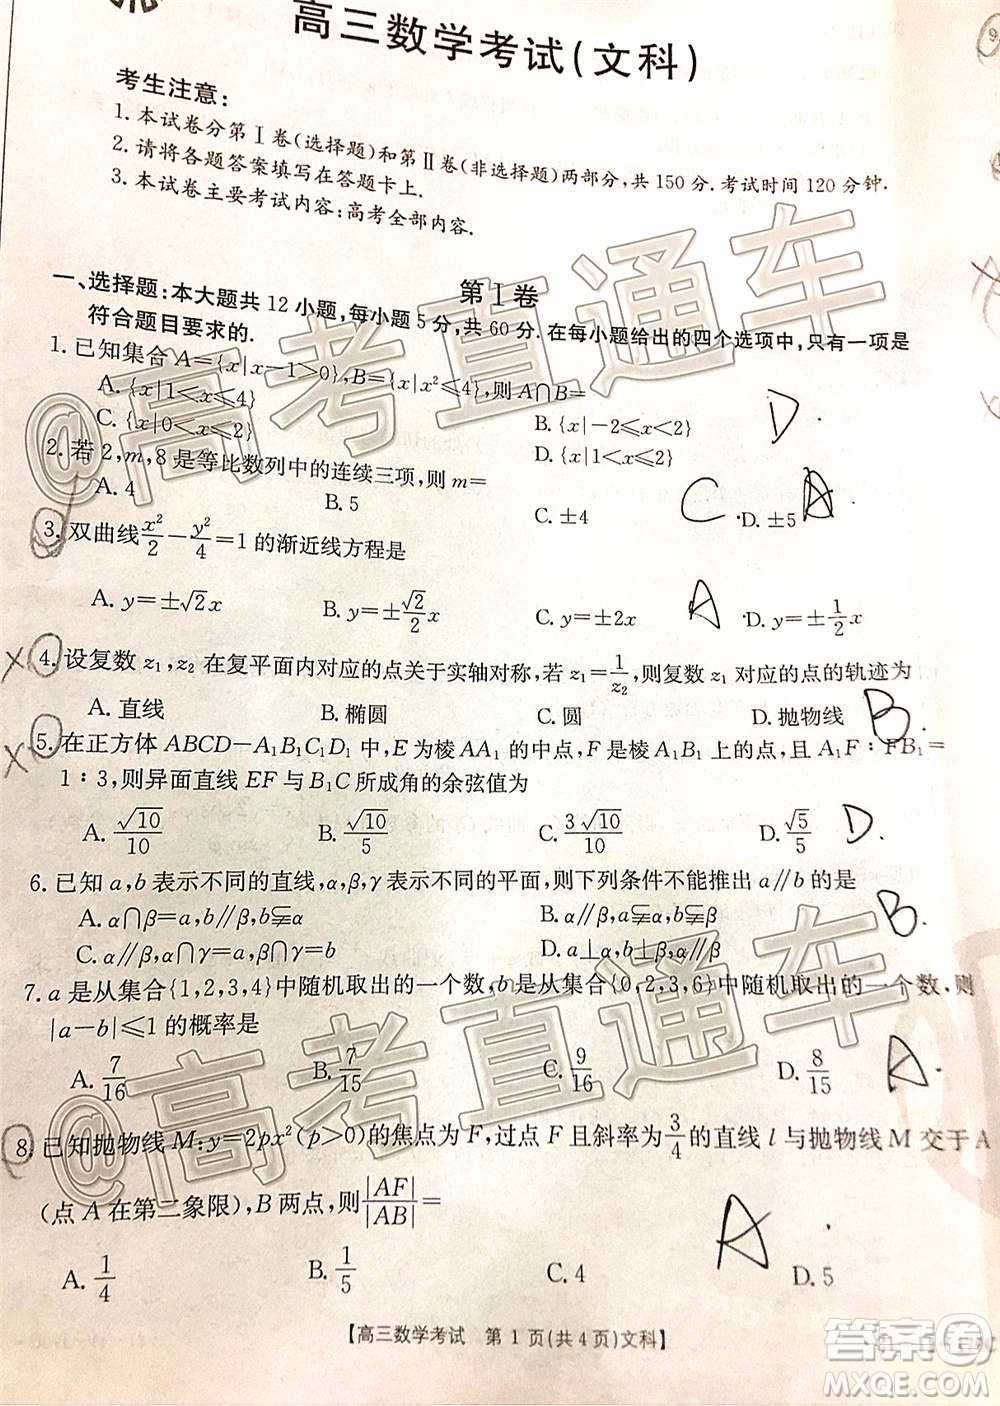 高三数学考试(文科)
考生注意:
1. 本试卷分第Ⅰ卷(选择题)和第Ⅱ卷(非选择题)两部分,共 150 分. 考试时间 120 分钟.
2. 请将各题答案填写在答题卡上.
3. 本试卷主要考试内容:高考全部内容.
第Ⅰ卷
一、选择题:本大题共 12 小题,每小题 5 分,共 60 分. 在每小题给出的四个选项中,只有一项是
符合题目要求的.
1. 已知集合 A={x|x-1>0},B={x|x²≤4},则 A∩B=
A. {x|1<x≤4} B. {x|-2≤x<2} D
C. {x|0<x≤2} D. {x|1<x≤2}
2. 若 2,m,8 是等比数列中的连续三项,则 m=
A. 4 B. 5 C. ±4 D. ±5 C A
3. 双曲线 x²/2 - y²/4 =1 的渐近线方程是
A. y=±√2x B. y=±√2/2 x C. y=±2x D. y=±1/2 x A
4. 设复数 z₁,z₂ 在复平面内对应的点关于实轴对称,若 z₁=1/z₂,则复数 z₁ 对应的点的轨迹为
A. 直线 B. 椭圆 C. 圆 D. 抛物线 B
5. 在正方体 ABCD-A₁B₁C₁D₁ 中,E 为棱 AA₁ 的中点,F 是棱 A₁B₁ 上的点,且 A₁F∶FB₁=
1∶3,则异面直线 EF 与 B₁C 所成角的余弦值为
A. √10/10 B. √10/5 C. 3√10/10 D. √5/5 D
6. 已知 a,b 表示不同的直线,α,β,γ 表示不同的平面,则下列条件不能推出 a∥b 的是
A. α∩β=a,b∥β,b⫋α B. α∥β,a⫋α,b⫋β B
C. α∥β,α∩γ=a,β∩γ=b D. a⊥α,α∥β,b⊥β
7. a 是从集合{1,2,3,4}中随机取出的一个数,b 是从集合{0,2,3,6}中随机取出的一个数,则
|a-b|≤1 的概率是
A. 7/16 B. 7/15 C. 9/16 D. 8/15 A
8. 已知抛物线 M:y=2px²(p>0)的焦点为 F,过点 F 且斜率为 3/4 的直线 l 与抛物线 M 交于 A
(点 A 在第二象限),B 两点,则 |AF|/|AB| =
A. 1/4 B. 1/5 C. 4 D. 5 A
【高三数学考试 第 1 页(共 4 页)文科】
@高考直通车
@高考直通车
答案卷
MXQE.COM